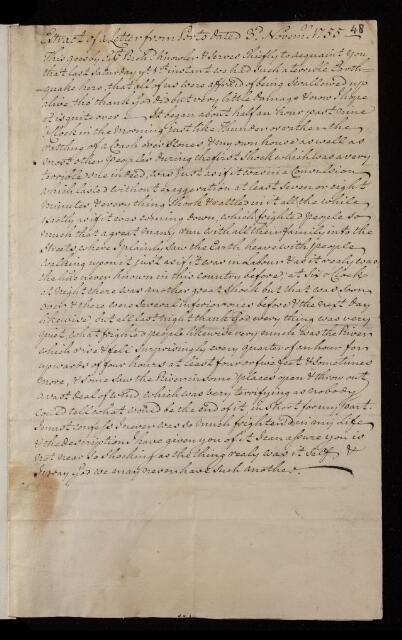 48
Extract of a Letter from Porto dated 3d. Novemr. 1755
This goes by Capt. Richd. Knowler & Serves Chiefly to acquaint you
that last Saturday ye. 1st. instant we had Such a terrible Earth-
-quake here, that all of us were affraid of being Swallowed up
alive tho' thank God did but very little Damage & now I hope
it is quite over. It began about half an hour past Nine
o'Clock in the Morning just like Thunder or rather the
rattling of a Coach over Stones & my own house as well as
most other Peoples during the first Shock which was a very
terrible one indeed, was just as if it was in a Convulsion
which lasted without exaggeration at least Seven or eight
minutes & every thing Shook & rattled in it all the while
exactly as if it was coming down, which frighted people so
much that a great many run with all their families into the
Streets, where I plainly Saw the Earth heave with people
walking upon it just as if it was in Labour (& as it realy was
the like never known in this country before) at Six o'Clock
at night there was another great Shock but that was Soon
over & there were Several inferior ones before & the next Day
likewise, but all last Night thank God every thing was very
quiet, what frighted people likewise very much was the River
which rise & fell Surprisingly every quarter of an hour for
upwards of four hours at least four or five feet & Sometimes
more, & Some Saw the River in Some places open & throw out
a vast deal of wind, which was very terrifying as nobody
could tell what would be the end of it, in Short for my part.
I must confess I never was so much frightend in my life
& the description I have given you of it I can assure you is
not near So Shocking as the thing realy was it Self, &
I pray God we may never have Such another.